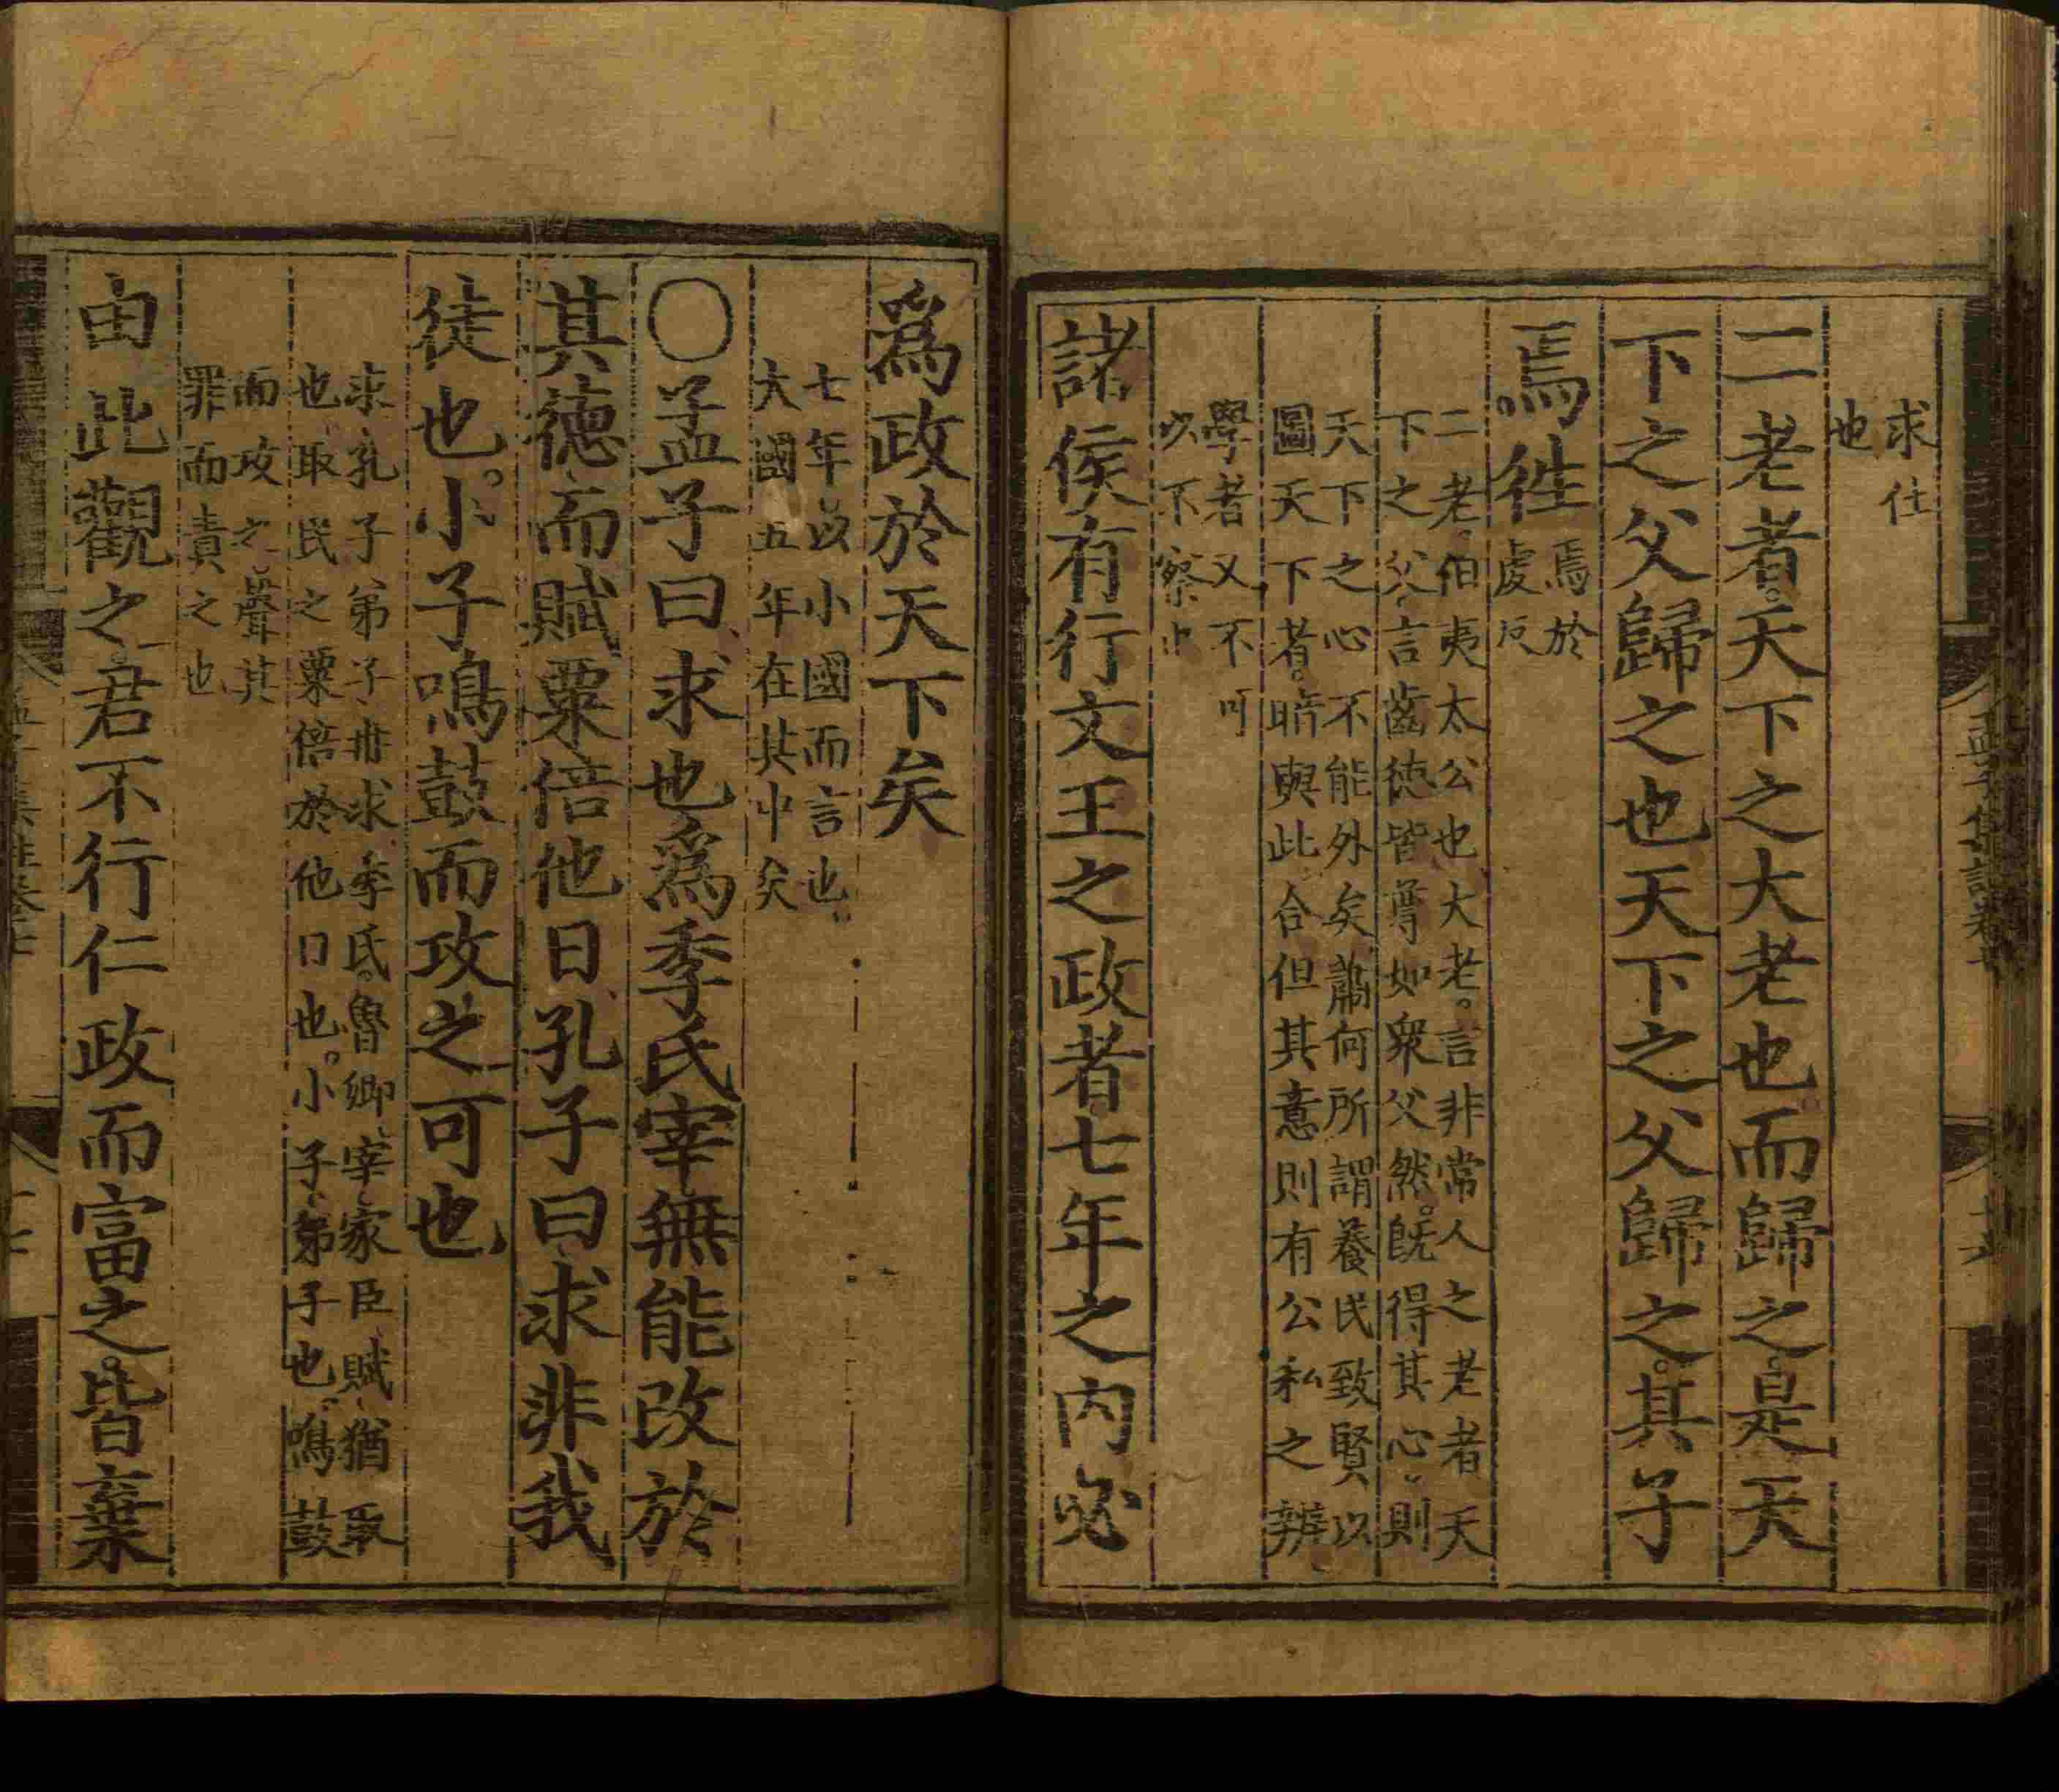 求仕
也
二老者。天下之大老也而歸之。是天
下之父歸之也天下之父歸之。其子
焉往
焉於
虔反
二老。伯夷太公也大老。言非常人之老者天
下之父、言齒德皆尊如衆父然。旣得其心、則
天下之心不能外矣蕭何所謂養民致賢以
圖天下者。暗與此合但其意則有公私之辨
學者又不可
以不察也
諸侯有行文王之政者七年之內必
爲政於天下矣
七年、以小國而言也。
大國五年在其中矣
○孟子曰求也爲季氏宰無能改於
其德、而賦粟倍他日孔子曰、求非我
徒也。小子鳴鼓而攻之可也
求、孔子弟子冉求、季氏。魯卿、宰、家臣、賦、猶取
也、取民之粟倍於他日也。小子、弟子也。鳴鼓
而攻之、聲其
罪而責之也
由此觀之。君不行仁政而富之。皆棄
孟子集註卷七